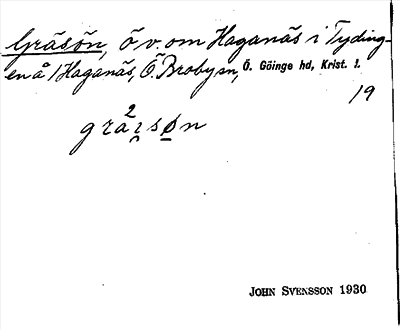 Gräsön, ö v. om Haganäs i Tyding-
en å /Haganäs, Ö. Broby sn, Ö. Göinge hd, Krist. l.
19
JOHN SVENSSON 1930